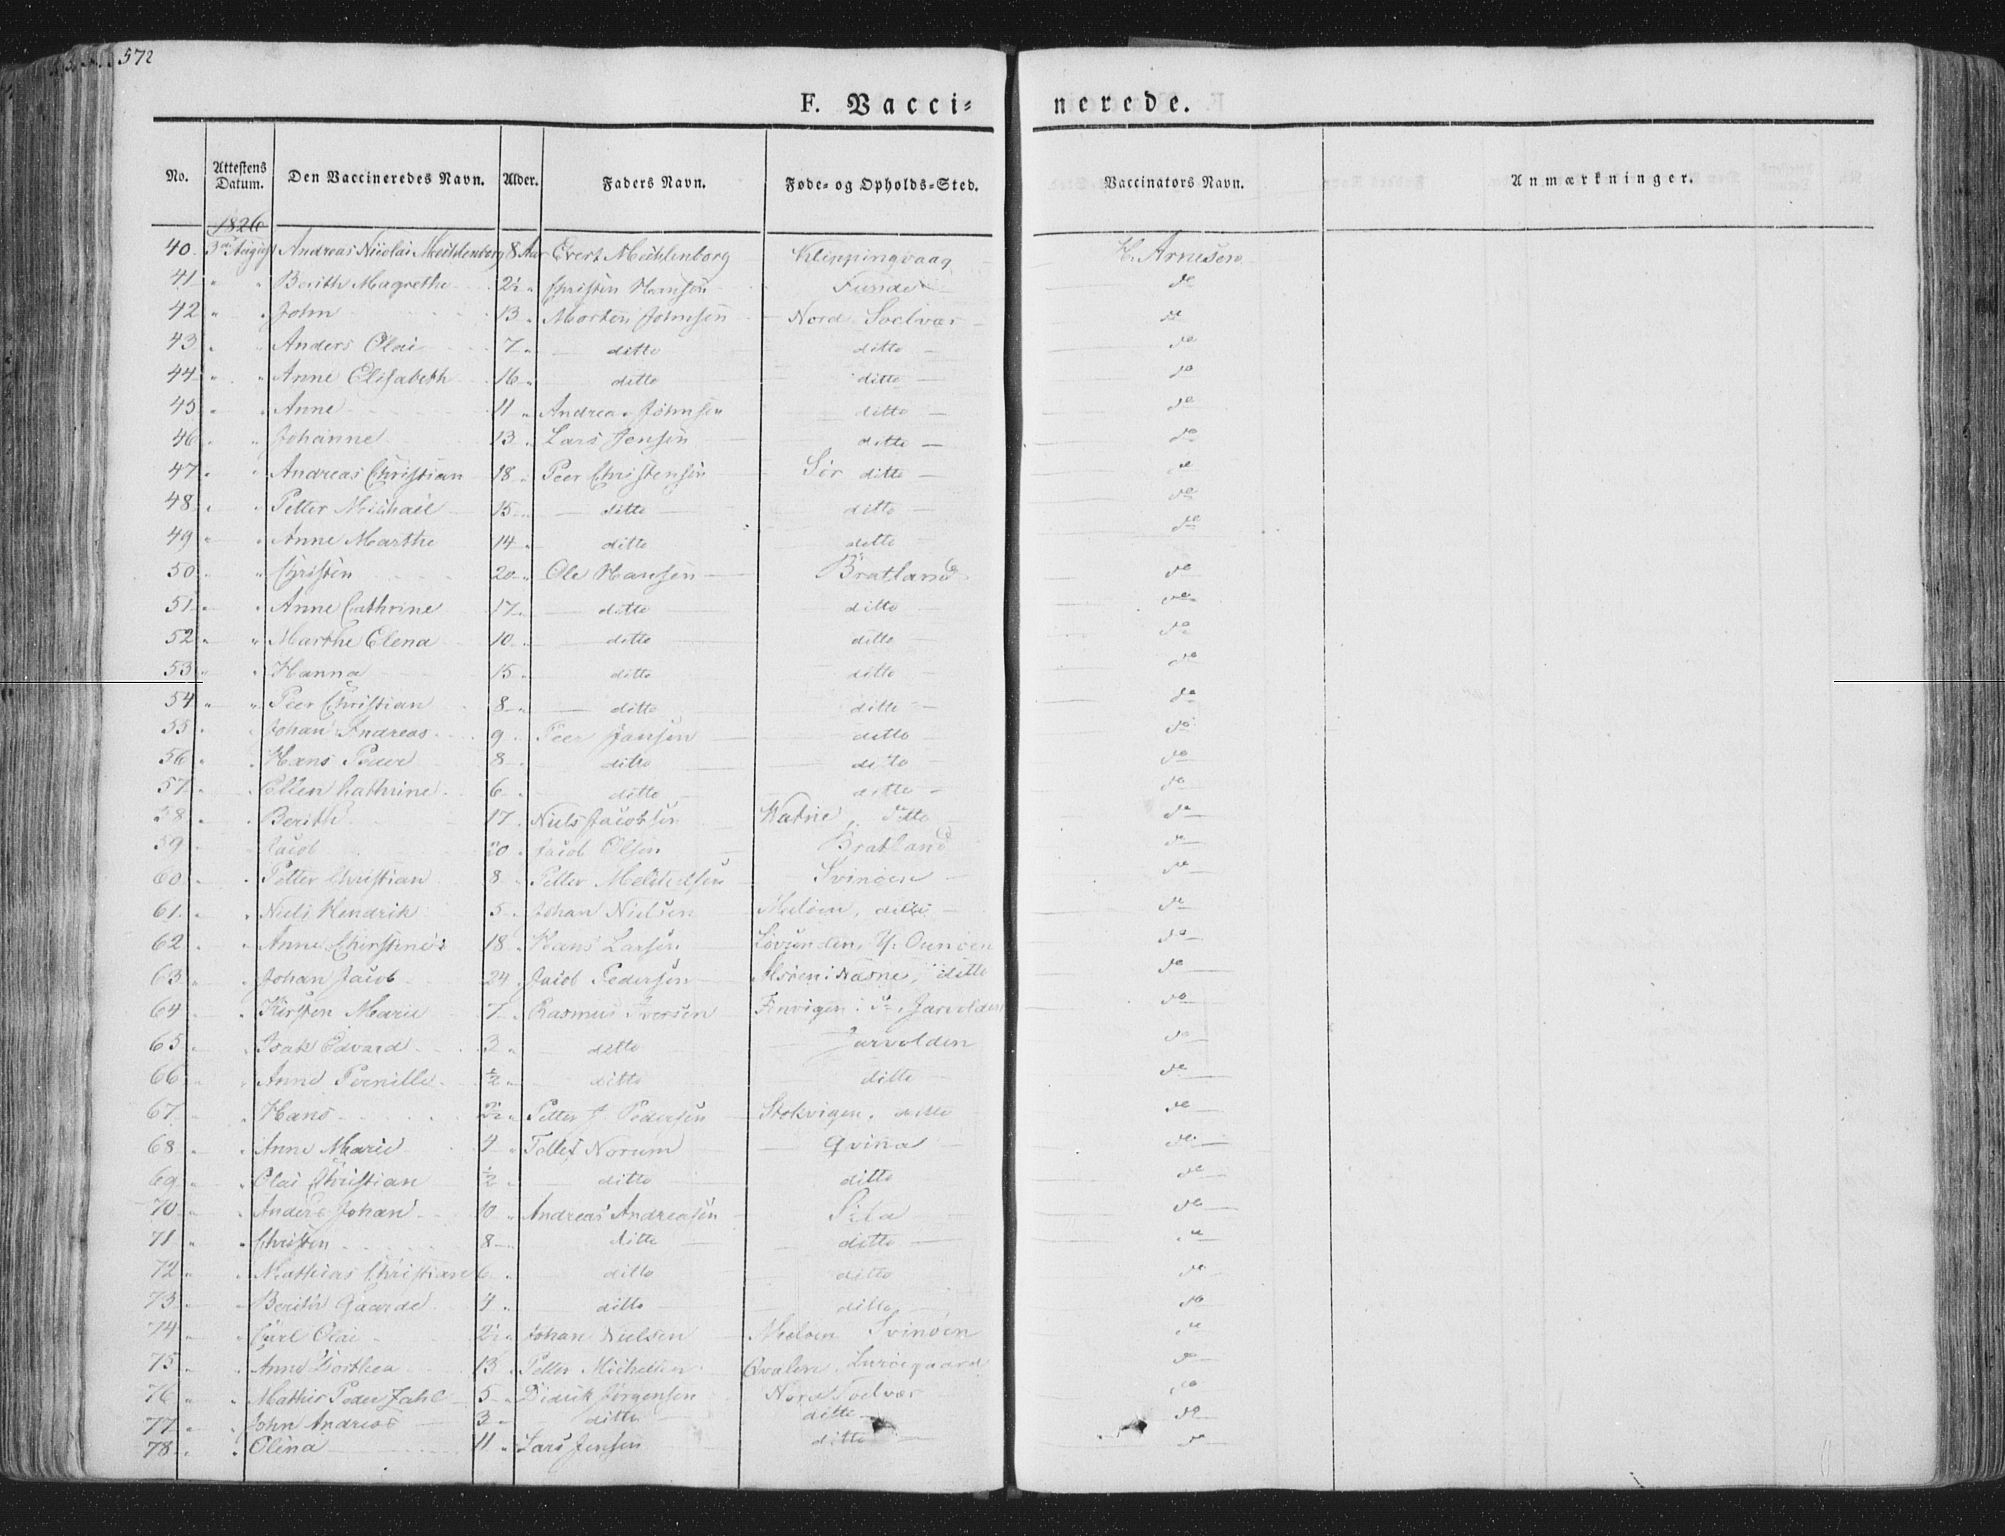 572
F. Vacci= nerede.
No. Attestens Datum. Den Vaccineredes Navn. Alder. Faders Navn. Føde= og Opholds=Sted. Vaccinators Navn. Anmærkninger.
1826
40 3 August Andreas Nicolai Mechlenborg 8 Aar Evert Mechlenborg Klippingvaag H. Arnesen
41 " " Berith Magrethe 2½ " Christen Hansen do
42 " " John 13 " Morten Johnsen Nord Soelvær do
43 " " Anders Olai 7 " ditto ditto do
44 " " Anne Elisabeth 16 " ditto ditto do
45 " " Anne 11 " Andreas Johnsen ditto do
46 " " Johanne 13 " Lars Jensen ditto do
47 " " Andreas Christian 18 " Peer Christensen Sør ditto do
48 " " Petter Michael 15 " ditto ditto do
49 " " Anne Marthe 14 " ditto ditto do
50 " " Christen 20 " Ole Hansen Bratland do
51 " " Anne Cathrine 17 " ditto ditto do
52 " " Marthe Elena 10 " ditto ditto do
53 " " Hanna 15 " ditto ditto do
54 " " Peer Christian 8 " ditto ditto do
55 " " Johan Andreas 9 " Peer Jansen ditto do
56 " " Hans Peder 8 " ditto ditto do
57 " " Ellen Cathrine 6 " ditto ditto do
58 " " Berith 17 " Niels Jacobsen ditto do
59 " " Jacob 20 " Jacob Olsen Bratland do
60 " " Petter Christian 8 " Petter Svinøen do
61 " " Niels Hendrik 5 " Johan Nielsen Meløen, ditto do
62 " " Anne 18 " Hans Larsen Lovunden, do
63 " " Johan Jacob 24 " Jacob Pedersen ditto do
64 " " Kirsten Marie 7 " Rasmus Iversen do
65 " " Isak Edvard 3 " ditto Jarvolden do
66 " " Anne Pernille ½ " ditto ditto do
67 " " Hans 2½ " Petter J Pedersen Stokvigen, ditto do
68 " " Anne Marie 4 " Norum Qvina do
69 " " Olai Christian ½ " ditto ditto do
70 " " Anders Johan 10 " Andreas Andreasen Sila do
71 " " Christen 8 " ditto ditto do
72 " " Mathias Christian 6 " ditto ditto do
73 " " Berith 4 " ditto ditto do
74 " " Carl Olai 2½ " Johan Nielsen Meløen Svinøen do
75 " " Anne Dorthea 13 " Petter Michelsen Qvalen, Lurøegaard do
76 " " Peder Zahl 5 " Didrik Jørgensen Nord Soelvær do
77 " " John Andreas 3 " ditto ditto do
78 " " Olina 11 " Lars Jensen ditto do